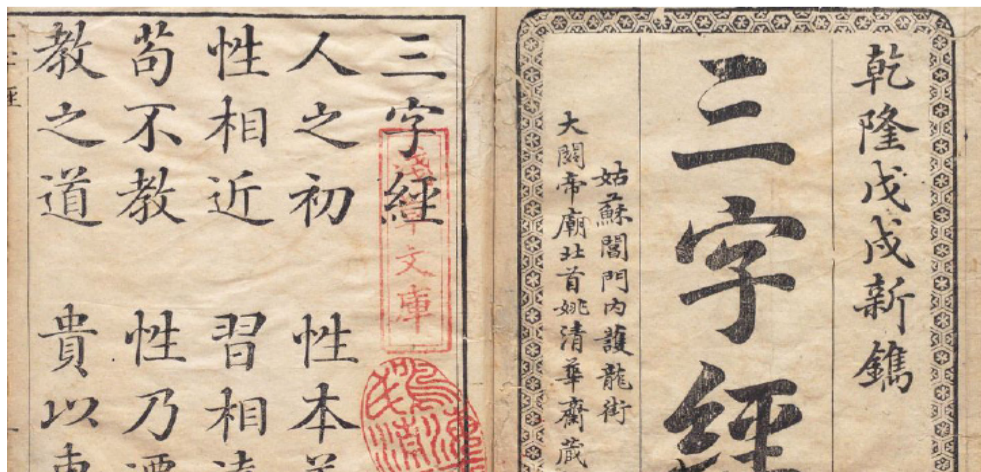 乾隆戊戌新鐫
三字經
姑蘇閶門內護龍街
大關帝廟北首姚清華齋藏
三字經
人之初 性本
性相近 習相遠
苟不教 性乃遷
教之道 貴以專
文庫